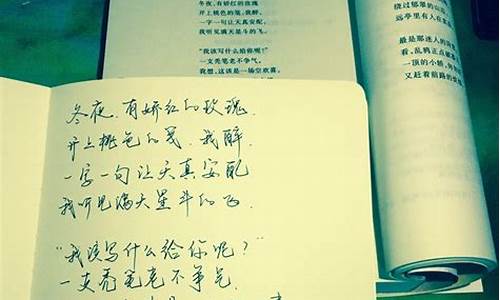 冬夜，有娇红的玫瑰
开上桃色的笺，我醉，
一字一句让天真安配，
我听见满天星斗的飞。
“我该写什么给你呢？”
一支秃笔老不争气，
我想，这该是一场空欢喜，
绕过郁翠的山
远亭里有人在
最是那迷人的
看，乱鸦正点破
一顶的小轿，
又赶着前路的
冬夜，有娇红的玫瑰，
开上桃色的笺，我醉，
一字一句让天真安配
我听见满天星斗的飞，
“我该写什么给你呢？”
一支秃笔老不争气，